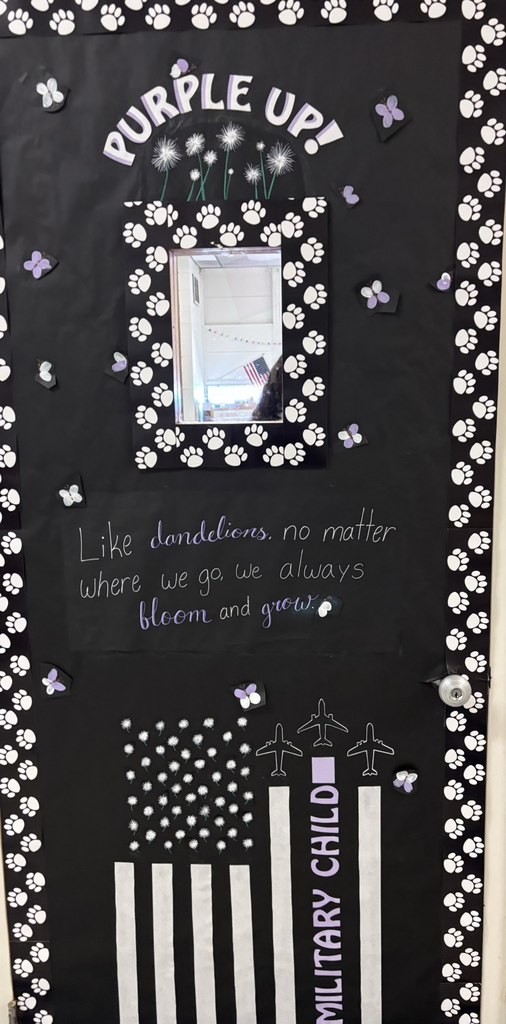 PURPLE UP!
Like dandelions, no matter
where we go, we always
bloom and grow.
MILITARY CHILD